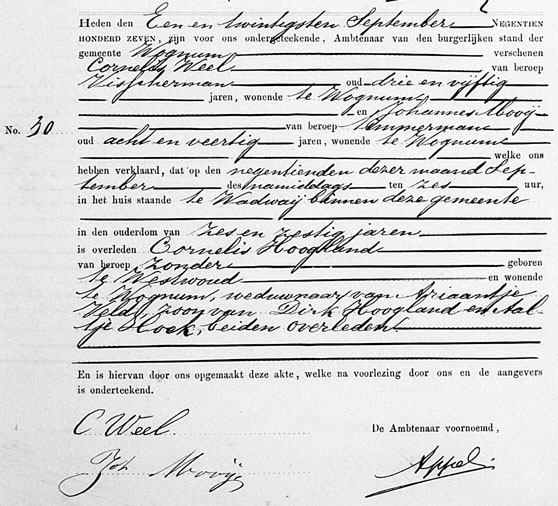 Heden den Een en twintigsten September NEGENTIEN
HONDERD ZEVEN, zijn voor ons ondergeteekende, Ambtenaar van den burgerlijken stand der
gemeente Wognum verschenen
Cornelis Weel van beroep
Visscherman oud drie en vijftig
jaren, wonende te Wognum
en Johannes Mooij
No. 30 van beroep Timmerman
oud acht en veertig jaren, wonende te Wognum
welke ons
hebben verklaard, dat op den negentienden dezer maand Sep-
tember des namiddags ten zes uur,
in het huis staande te Wadwaij binnen deze gemeente
in den ouderdom van zes en zestig jaren
is overleden Cornelis Hoogland
van beroep zonder geboren
te Westwoud en wonende
te Wognum, weduwnaar van Ariaantje
Veld, zoon van Dirk Hoogland en Aal-
tje Hoek, beiden overleden.
En is hiervan door ons opgemaakt deze akte, welke na voorlezing door ons en de aangevers
is onderteekend.
C Weel
De Ambtenaar voornoemd,
Joh Mooij
Appel